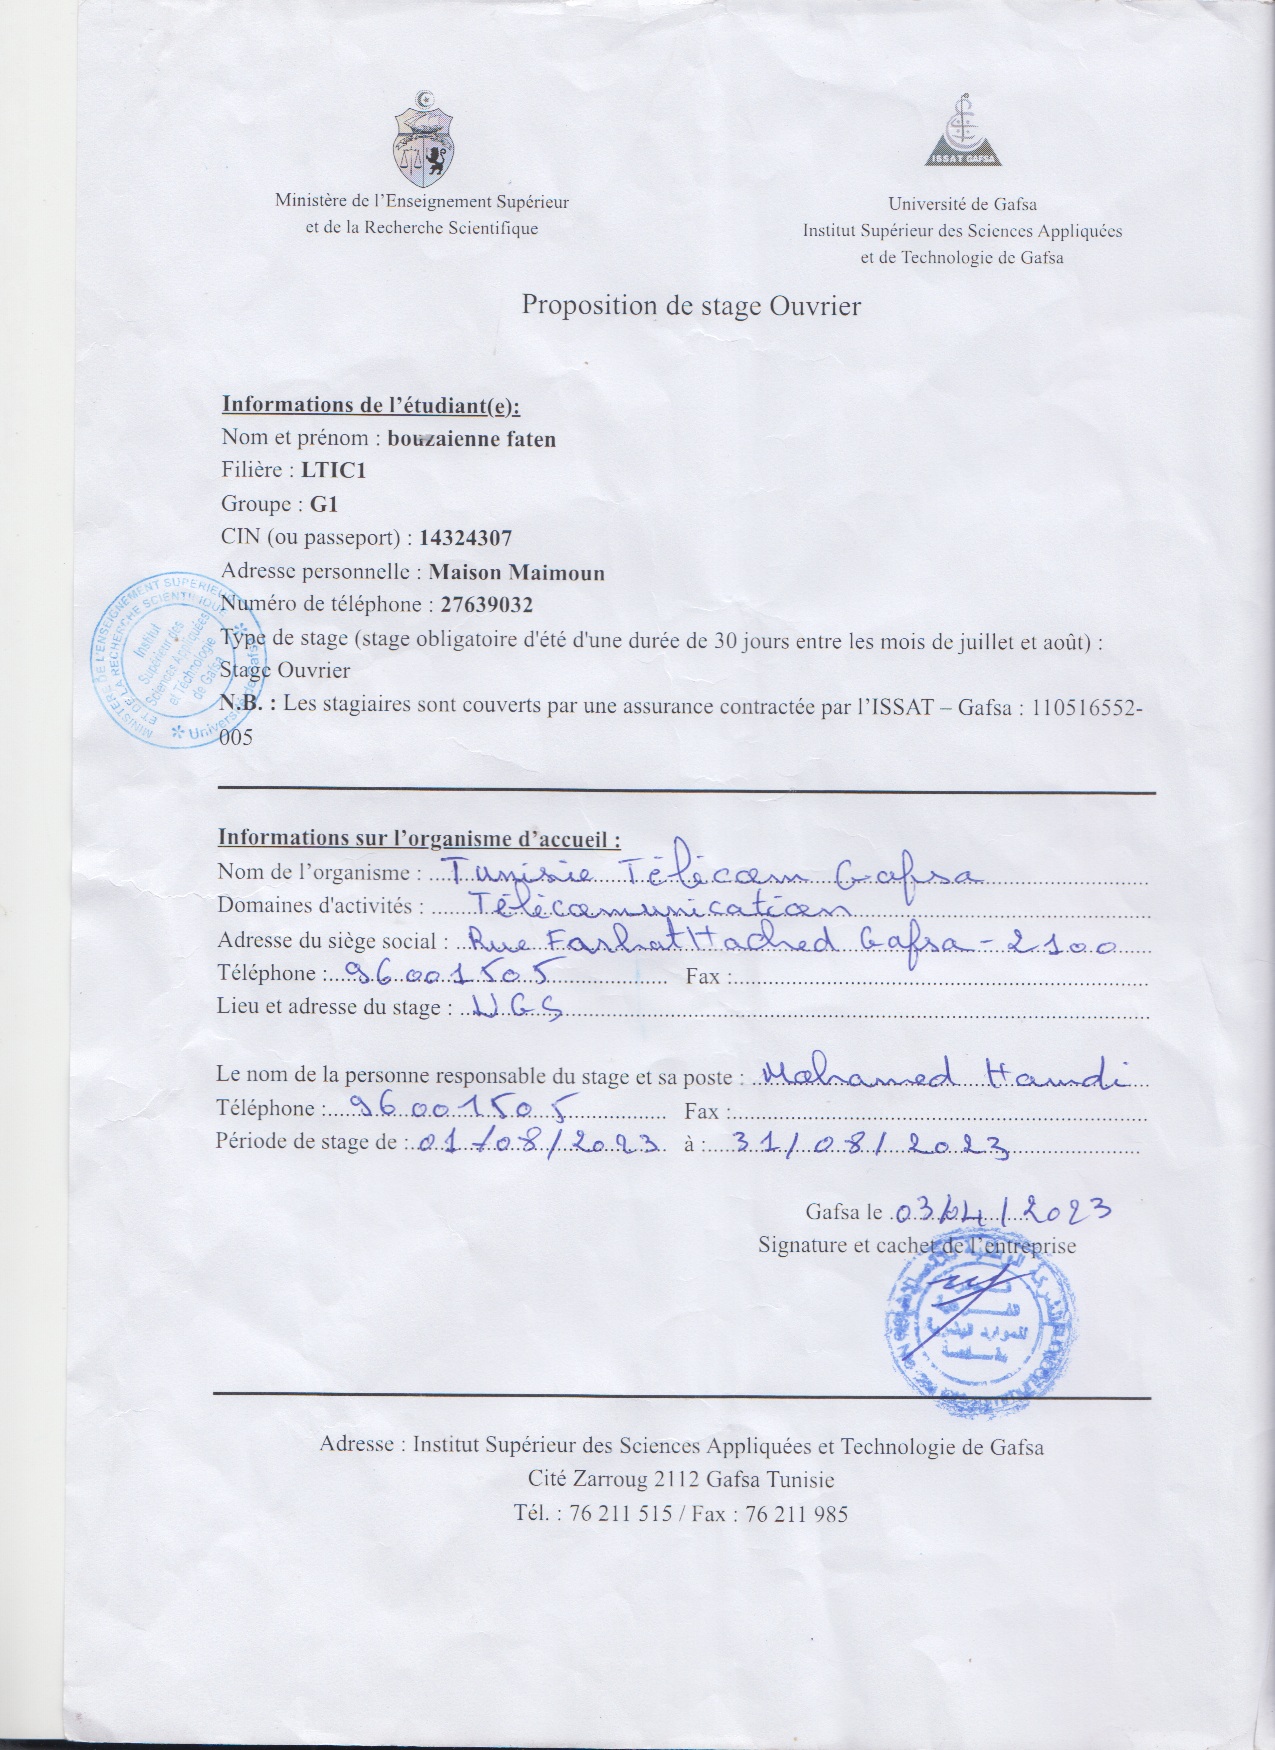 ISSAT GAFSA
Ministère de l'Enseignement Supérieur
et de la Recherche Scientifique
Université de Gafsa
Institut Supérieur des Sciences Appliquées
et de Technologie de Gafsa
Proposition de stage Ouvrier
Informations de l'étudiant(e):
Nom et prénom : bouzaienne faten
Filière : LTIC1
Groupe : G1
CIN (ou passeport) : 14324307
Adresse personnelle : Maison Maimoun
Numéro de téléphone : 27639032
Type de stage (stage obligatoire d'été d'une durée de 30 jours entre les mois de juillet et août) :
Stage Ouvrier
N.B. : Les stagiaires sont couverts par une assurance contractée par l'ISSAT – Gafsa : 110516552-
005
MINISTERE DE L'ENSEIGNEMENT SUPERIEUR
ET DE LA RECHERCHE SCIENTIFIQUE
Institut
Supérieur des
Sciences Appliquées
et Téchnologie
de Gafsa
Université de Gafsa
Informations sur l'organisme d'accueil :
Nom de l'organisme : Tunisie Télécom Gafsa
Domaines d'activités : Télécomunication
Adresse du siège social : Rue Farhat Hached Gafsa - 2100
Téléphone : 96001505 Fax :
Lieu et adresse du stage : UGS
Le nom de la personne responsable du stage et sa poste : Mohamed Hamdi
Téléphone : 96001505 Fax :
Période de stage de : 01/08/2023 à : 31/08/2023
Gafsa le 03/04/2023
Signature et cachet de l'entreprise
للموارد البشرية
Adresse : Institut Supérieur des Sciences Appliquées et Technologie de Gafsa
Cité Zarroug 2112 Gafsa Tunisie
Tél. : 76 211 515 / Fax : 76 211 985